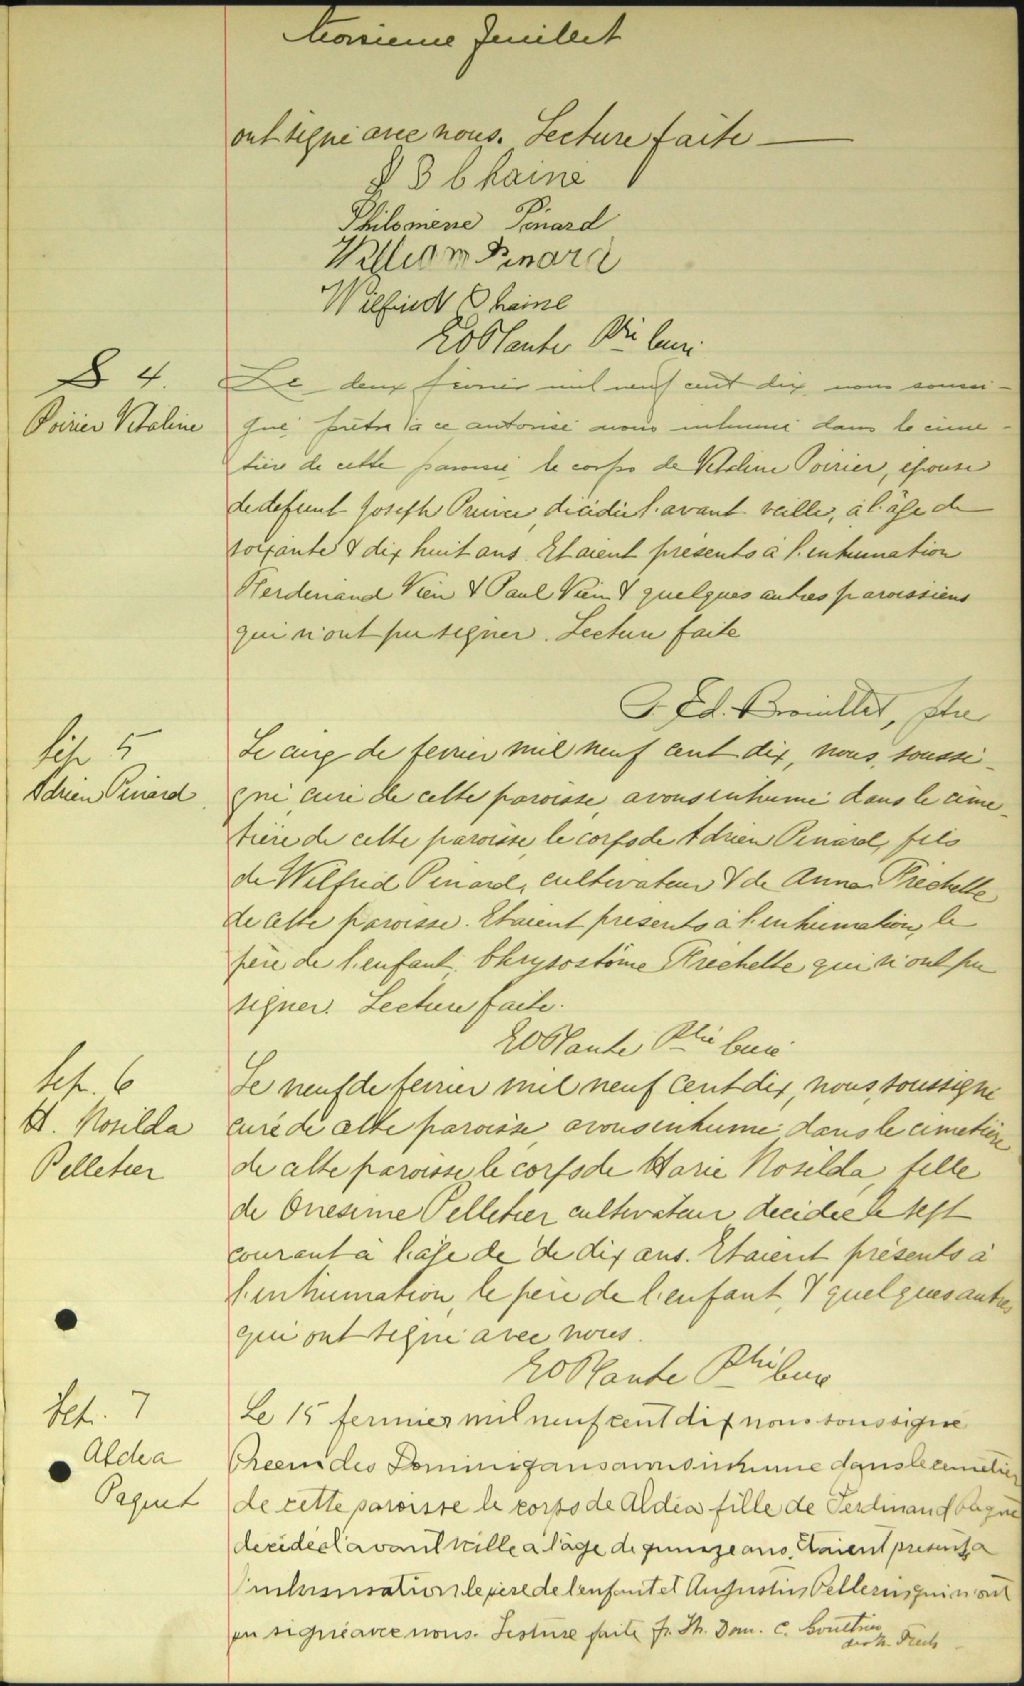 troisieme feuillet
ont signé avec nous. Lecture faite —
Chainé
Philomène Pinard
William Pinard
Wilfrid Chainé
EO Plante Ptre Curé
S 4.
Poirier Vitaline
Le deux février mil neuf cent dix, nous soussi-
gné, prêtre à ce autorisé avons inhumé dans le cime-
tière de cette paroisse, le corps de Vitaline Poirier, épouse
de defunt Joseph décédée l'avant veille, à l'âge de
soixante & dix huit ans. Etaient présents à l'inhumation
Ferdinand Vien & Paul Vien & quelques autres paroissiens
qui n'ont pu signer. Lecture faite
Ed. Brouillet, ptre
Sép 5
Adrien Pinard
Le cinq de fevrier mil neuf cent dix, nous, soussi-
gné, curé de cette paroisse, avons inhumé dans le cime-
tière de cette paroisse, le corps de Adrien Pinard, fils
de Wilfrid Pinard, cultivateur & de Anna Fréchette
de cette paroisse. Etaient présents à l'inhumation, le
père de l'enfant, Chrysostôme Fréchette qui n'ont pu
signer. Lecture faite.
EO Plante Ptre Curé
Sep. 6
M. Rosilda
Pelletier
Le neuf de fevrier mil neuf cent dix, nous, soussigné
curé de cette paroisse, avons inhumé dans le cimetière
de cette paroisse le corps de Marie Rosilda, fille
de Onesime Pelletier cultivateur, décédée le sept
courant à l'âge de de dix ans. Etaient présents à
l'inhumation, le père de l'enfant, & quelques autres
qui ont signé avec nous.
EO Plante Ptre Curé
Sep. 7
Aldea
Paquet
Le 15 fevrier mil neuf cent dix nous soussigné
des avons inhumé dans le cimetière
de cette paroisse le corps de Aldéa fille de Ferdinand Paquet
décédée l'avant veille a l'âge de quinze ans. Etaient present a
l'inhumation le père de l'enfant et Augustin Pellerin qui n'ont
pu signé avec nous. Lecture faite fr. Th. Dom. C.